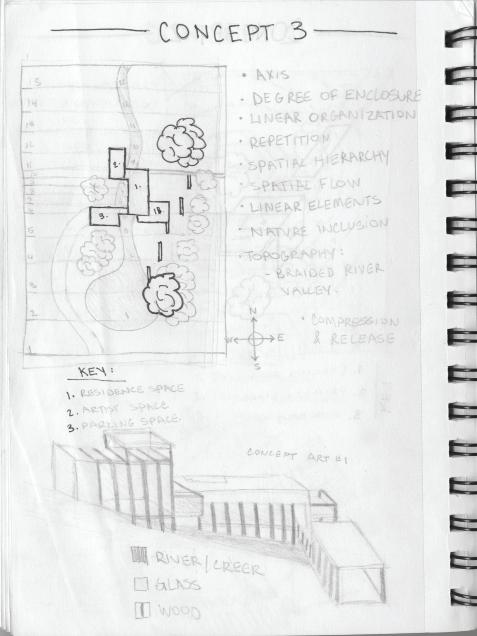 CONCEPT 3
• AXIS
• DEGREE OF ENCLOSURE
• LINEAR ORGANIZATION
• REPETITION
• SPATIAL HIERARCHY
• SPATIAL FLOW
• LINEAR ELEMENTS
• NATURE INCLUSION
• TOPOGRAPHY:
- BRAIDED RIVER
VALLEY.
• COMPRESSION
& RELEASE
15
14
2.
1.
1B
3.
5
4
3
2
1
N
W
E
S
KEY:
1. RESIDENCE SPACE
2. ARTIST SPACE
3. PARKING SPACE.
CONCEPT ART #1
RIVER/CREEK
GLASS
WOOD